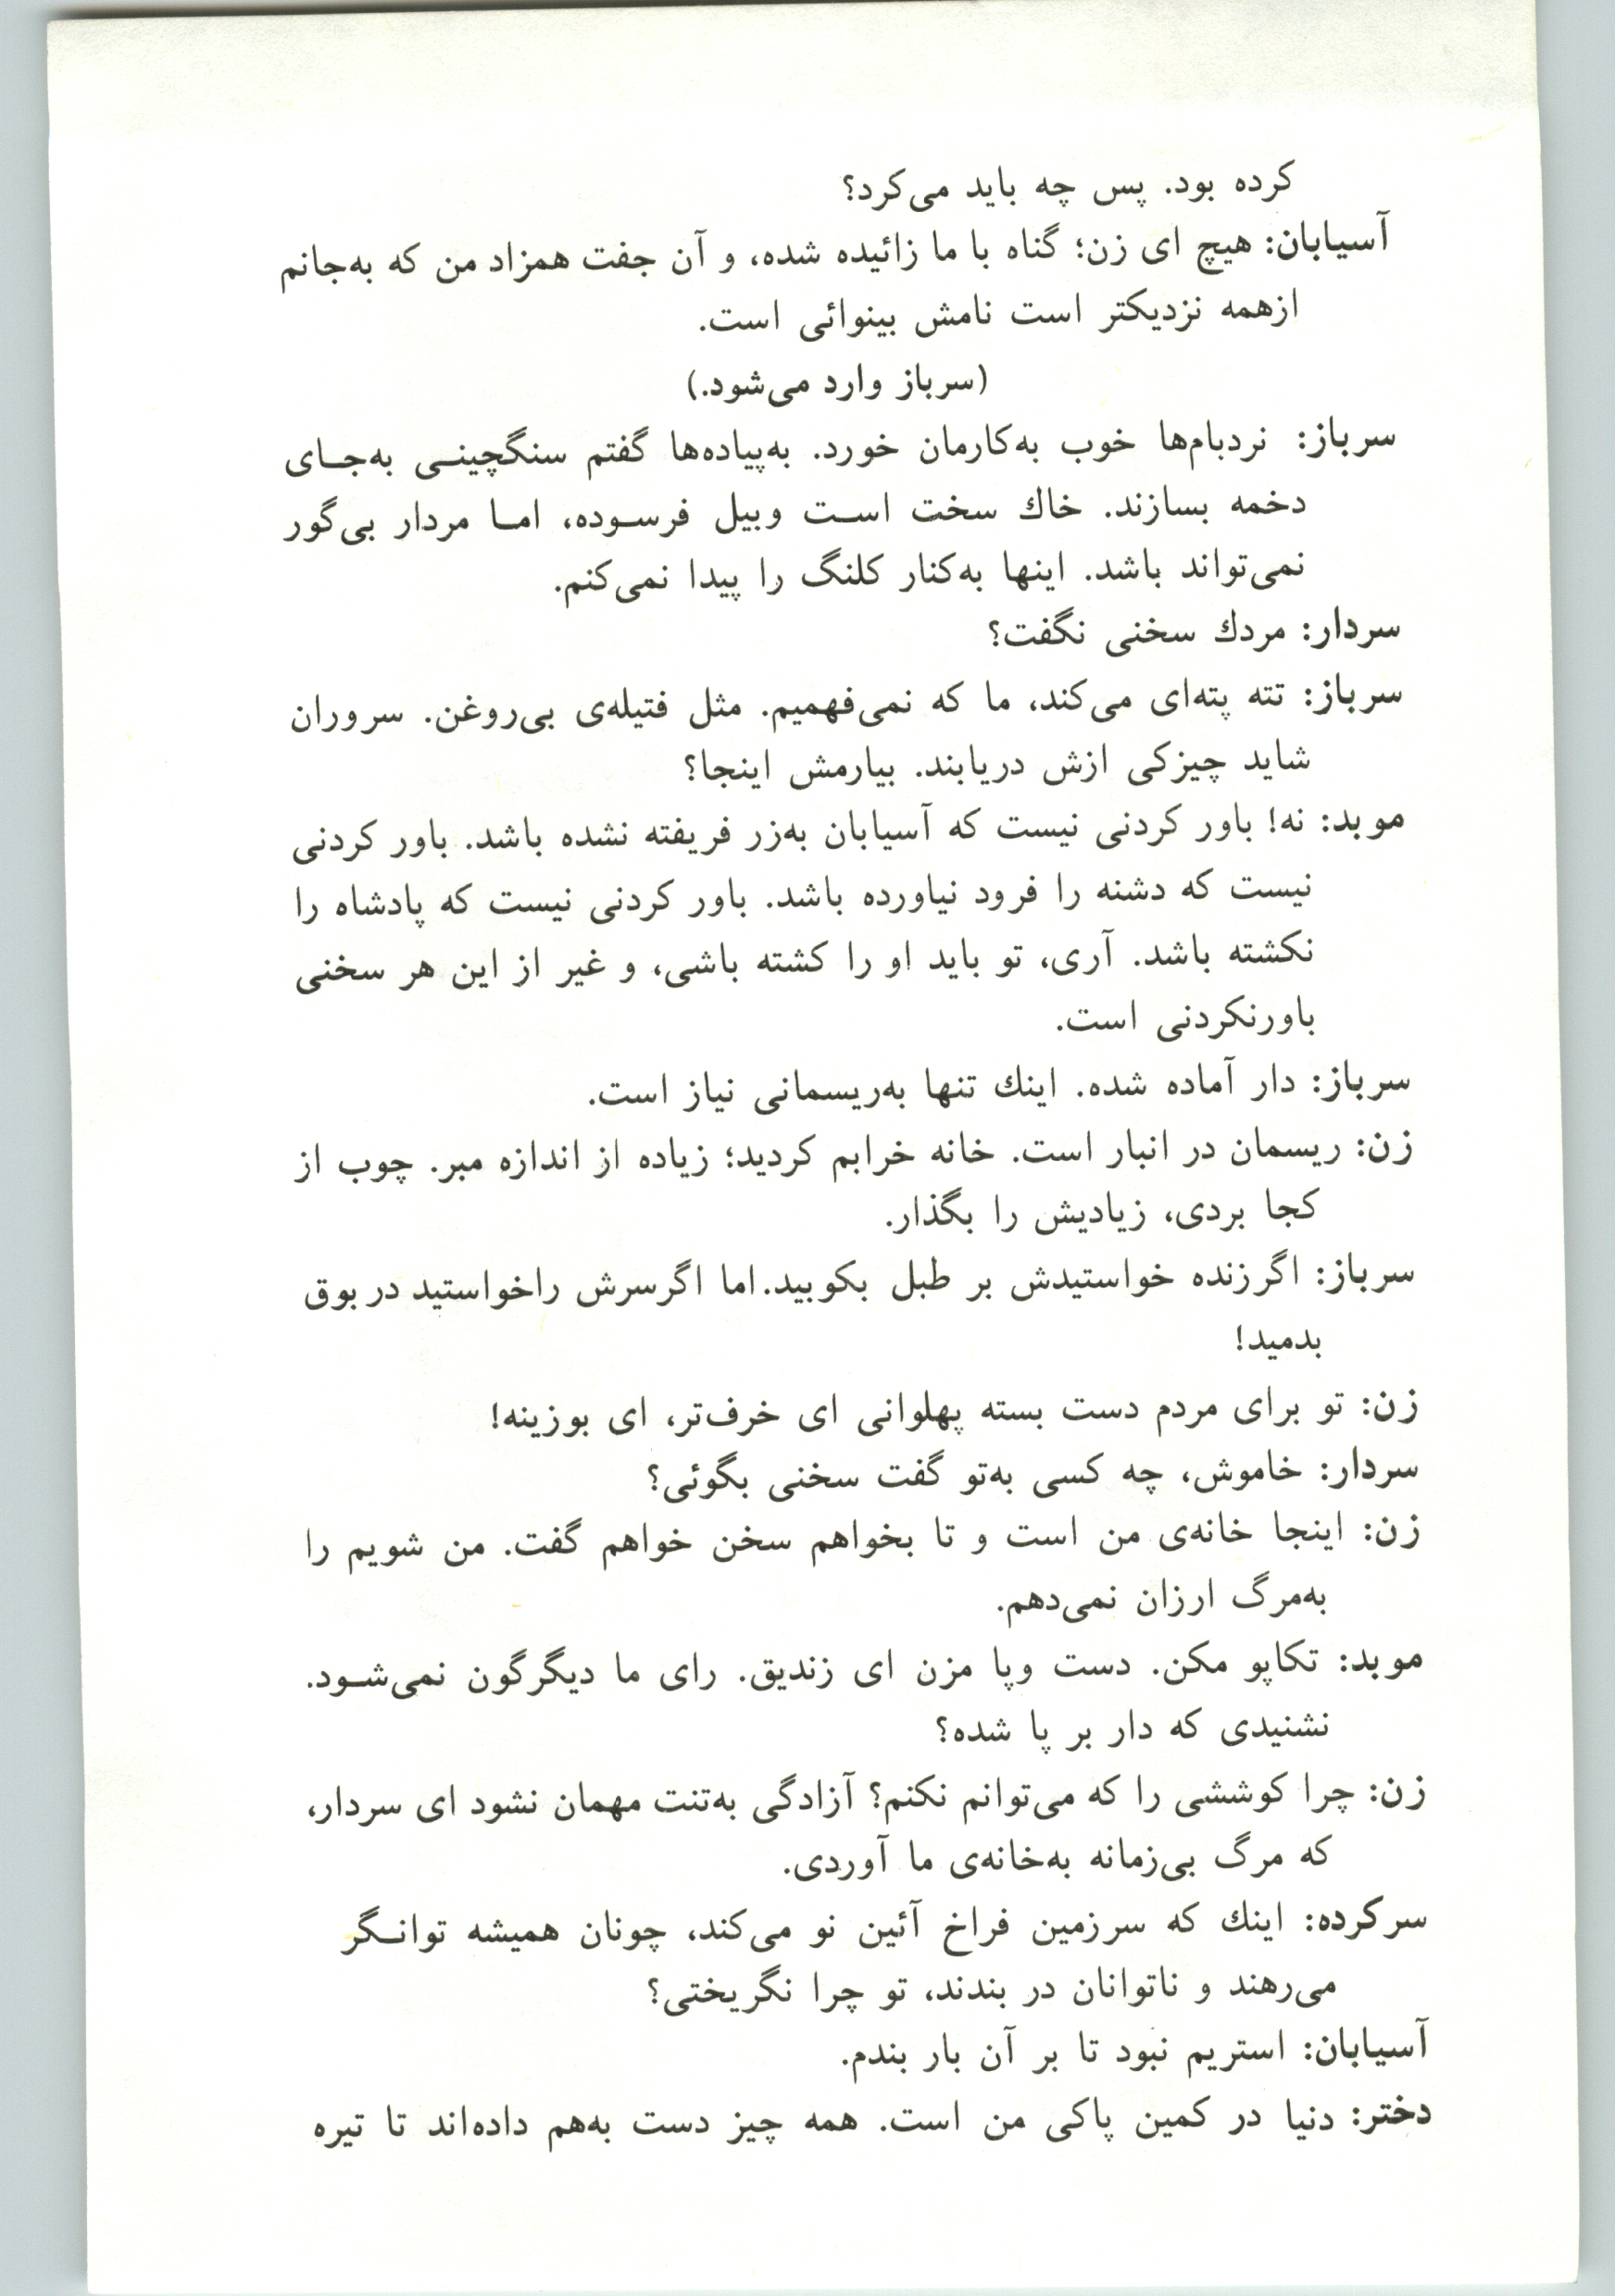 کرده بود. پس چه باید می‌کرد؟
آسیابان: هیچ ای زن؛ گناه با ما زائیده شده، و آن جفت همزاد من که به‌جانم
ازهمه نزدیکتر است نامش بینوائی است.
(سرباز وارد می‌شود.)
سرباز: نردبام‌ها خوب به‌کارمان خورد. به‌پیاده‌ها گفتم سنگچینـی به‌جـای
دخمه بسازند. خاك سخت اسـت وبیل فرسـوده، امـا مردار بی‌گور
نمی‌تواند باشد. اینها به‌کنار کلنگ را پیدا نمی‌کنم.
سردار: مردك سخنی نگفت؟
سرباز: تته پته‌ای می‌کند، ما که نمی‌فهمیم. مثل فتیله‌ی بی‌روغن. سروران
شاید چیزکی ازش دریابند. بیارمش اینجا؟
موبد: نه! باور کردنی نیست که آسیابان به‌زر فریفته نشده باشد. باور کردنی
نیست که دشنه را فرود نیاورده باشد. باور کردنی نیست که پادشاه را
نکشته باشد. آری، تو باید او را کشته باشی، و غیر از این هر سخنی
باورنکردنی است.
سرباز: دار آماده شده. اینك تنها به‌ریسمانی نیاز است.
زن: ریسمان در انبار است. خانه خرابم کردید؛ زیاده از اندازه مبر. چوب از
کجا بردی، زیادیش را بگذار.
سرباز: اگرزنده خواستیدش بر طبل بکوبید.اما اگرسرش راخواستید در بوق
بدمید!
زن: تو برای مردم دست بسته پهلوانی ای خرف‌تر، ای بوزینه!
سردار: خاموش، چه کسی به‌تو گفت سخنی بگوئی؟
زن: اینجا خانه‌ی من است و تا بخواهم سخن خواهم گفت. من شویم را
به‌مرگ ارزان نمی‌دهم.
موبد: تکاپو مکن. دست وپا مزن ای زندیق. رای ما دیگرگون نمی‌شـود.
نشنیدی که دار بر پا شده؟
زن: چرا کوششی را که می‌توانم نکنم؟ آزادگی به‌تنت مهمان نشود ای سردار،
که مرگ بی‌زمانه به‌خانه‌ی ما آوردی.
سرکرده: اینك که سرزمین فراخ آئین نو می‌کند، چونان همیشه توانـگر
می‌رهند و ناتوانان در بندند، تو چرا نگریختی؟
آسیابان: استریم نبود تا بر آن بار بندم.
دختر: دنیا در کمین پاکی من است. همه چیز دست به‌هم داده‌اند تا تیره